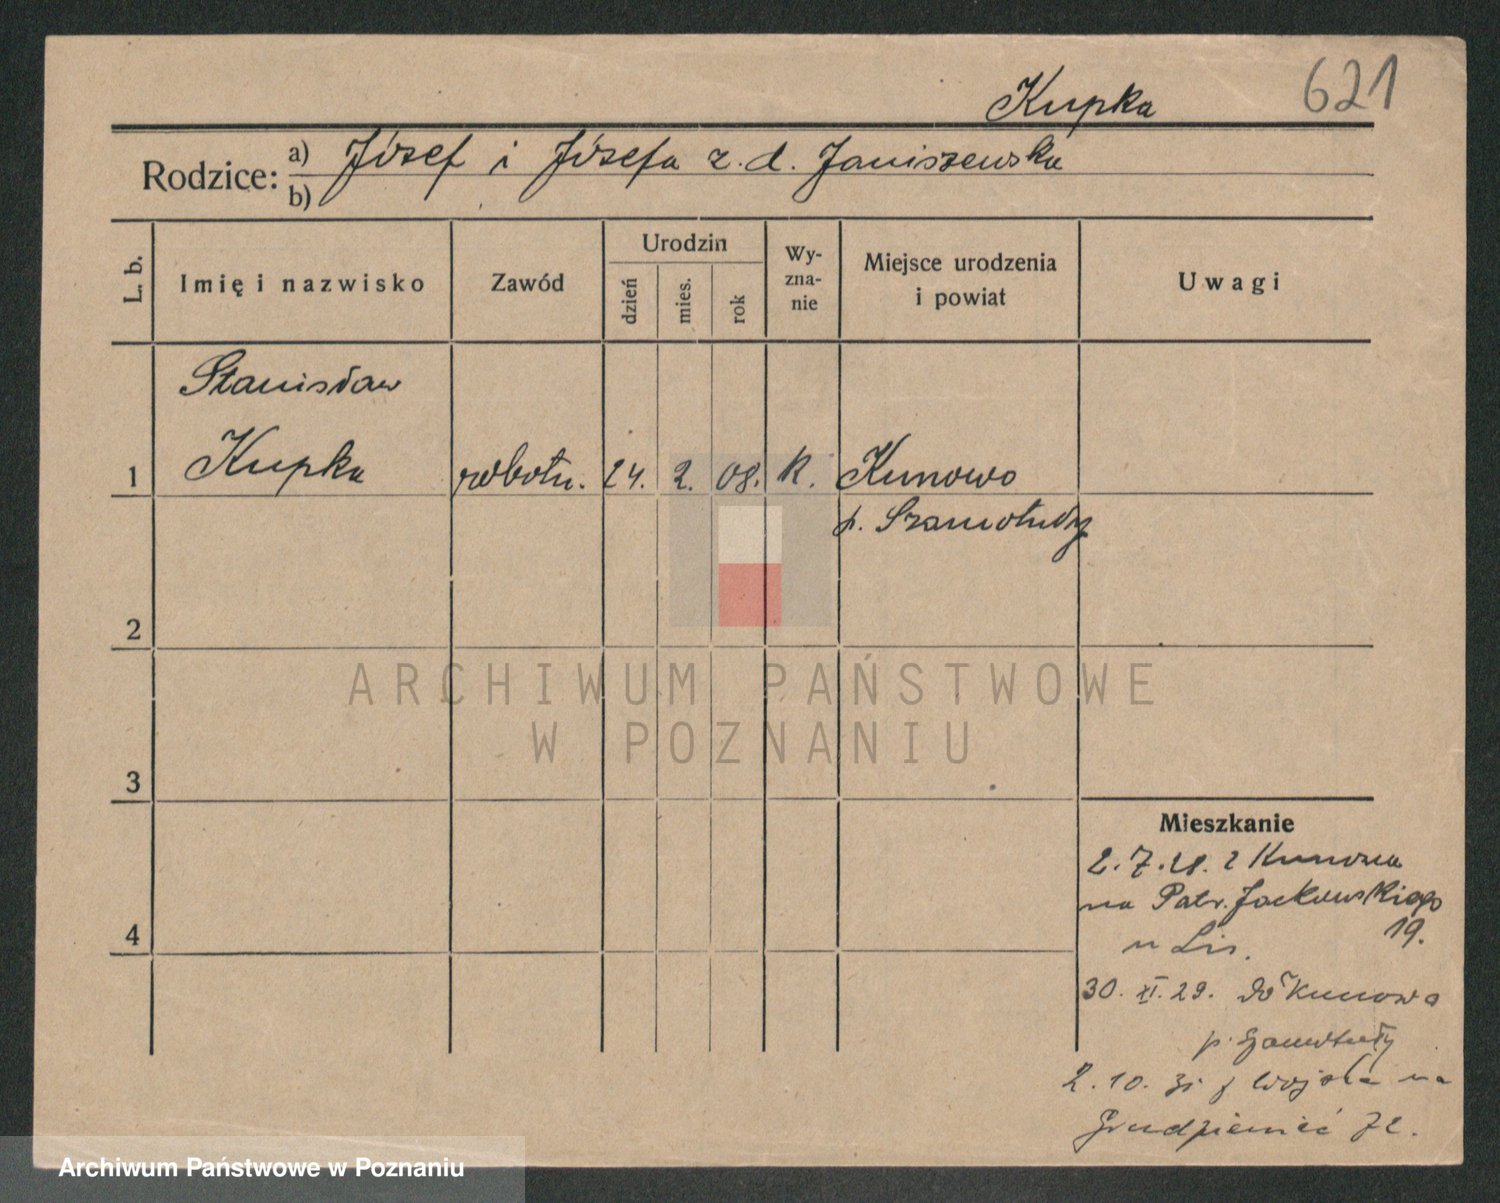 Kupka
621
Rodzice: a) Józef i Józefa z. d. Janiszewska
b)
L. b.
Imię i nazwisko
Zawód
Urodzin
dzień
mies.
rok
Wy-
zna-
nie
Miejsce urodzenia
i powiat
Uwagi
Stanisław
1 Kupka robotn. 24. 2. 08. K. Kunowo
p. Szamotuły
2
3
4
Mieszkanie
2.7.28. z Kunowa
na Patr. Jackowskiego
19.
u Lis.
30. XI. 29. do Kunowa
p. Szamotuły
2. 10. 31 z Wojska na
Grudzieniec
ARCHIWUM PAŃSTWOWE
W POZNANIU
Archiwum Państwowe w Poznaniu